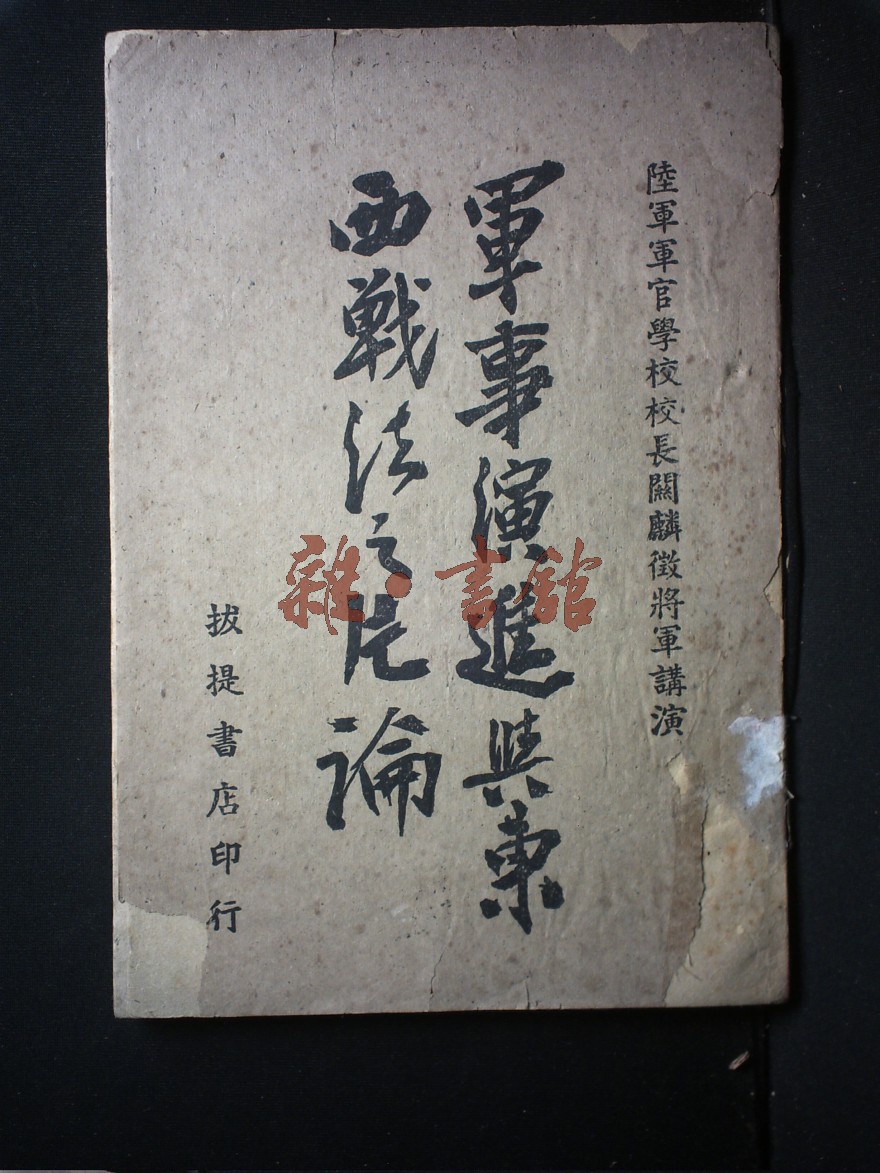 陸軍軍官學校校長關麟徵將軍講演
軍事演進與東
西戰法之片論
拔提書店印行
雜·書館